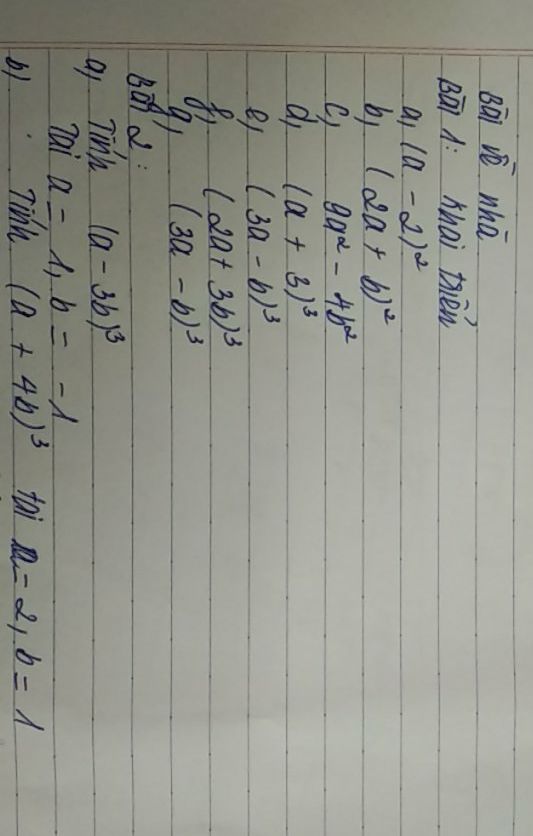 Bài về nhà
Bài 1: Khai triển
a, (a - 2)²
b, (2a + b)²
c, 9a² - 4b²
d, (a + 3)³
e, (3a - b)³
f, (2a + 3b)³
g, (3a - b)³
Bài 2:
a, Tính (a - 3b)³
Tại a = 1, b = -1
b) Tính (a + 4b)³ tại a = 2, b = 1